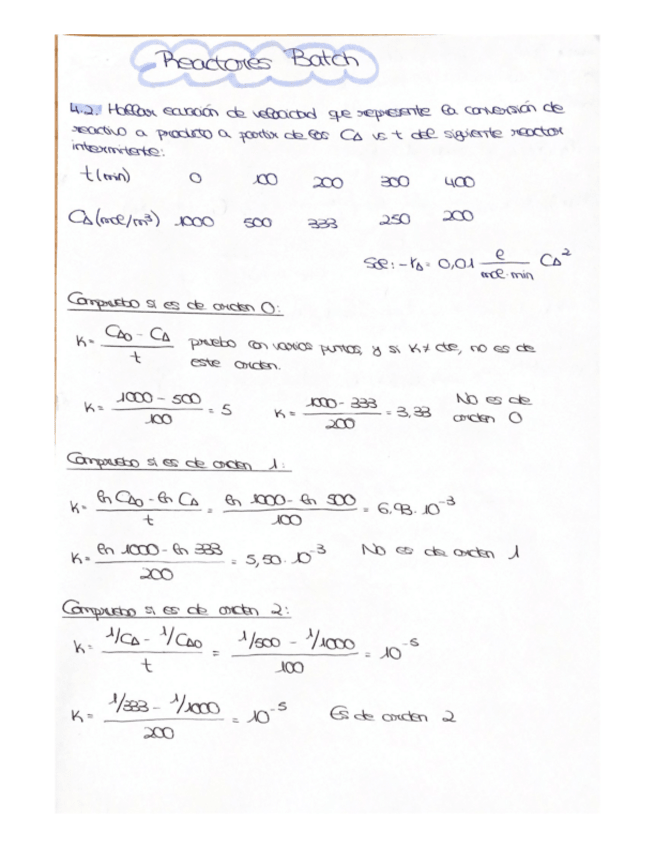 Reactores Batch
4.2. Hallar ecuación de velocidad que represente la conversión de
reactivo a producto a partir de los CA vs t del siguiente reactor
intermitente:
t(min) 0 100 200 300 400
CA (mol/m³) 1000 500 333 250 200
Sol: -rA = 0,01 l/mol·min CA²
Compruebo si es de orden 0:
K = (CA0 - CA)/t pruebo con varios puntos, y si K ≠ cte, no es de
este orden.
K = (1000 - 500)/100 = 5 K = (1000 - 333)/200 = 3,33 No es de
orden 0
Compruebo si es de orden 1:
K = (ln CA0 - ln CA)/t = (ln 1000 - ln 500)/100 = 6.93·10⁻³
K = (ln 1000 - ln 333)/200 = 5,50·10⁻³ No es de orden 1
Compruebo si es de orden 2:
K = (1/CA - 1/CA0)/t = (1/500 - 1/1000)/100 = 10⁻⁵
K = (1/333 - 1/1000)/200 = 10⁻⁵ Es de orden 2